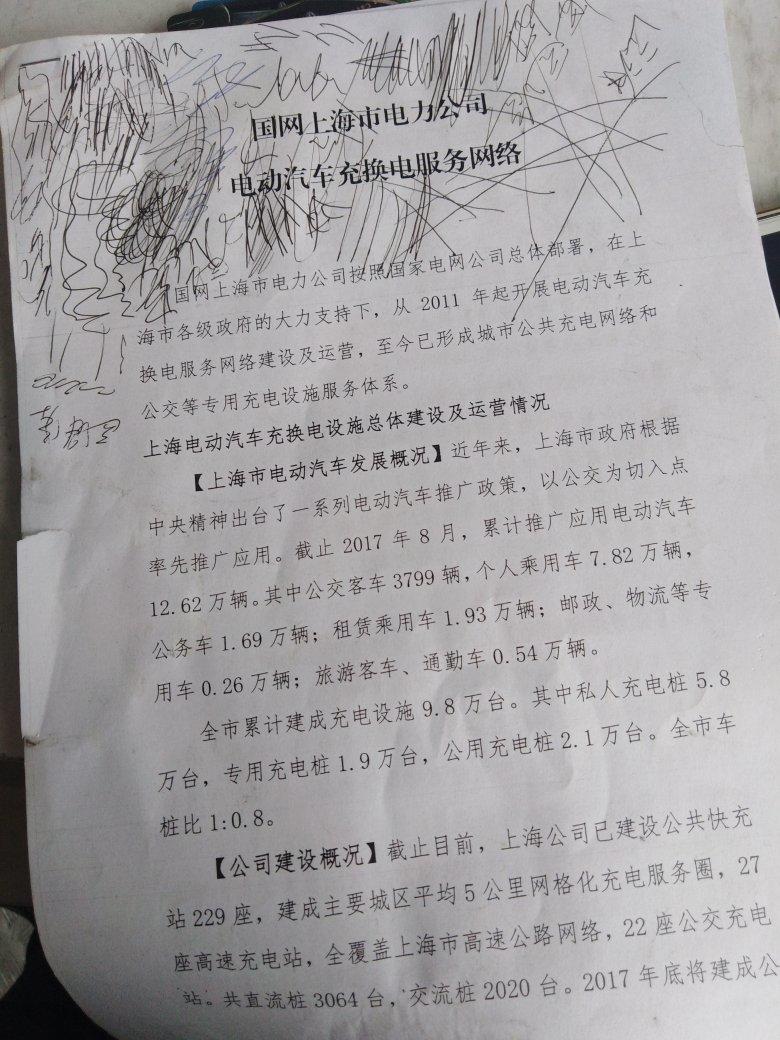 国网上海市电力公司
电动汽车充换电服务网络
国网上海市电力公司按照国家电网公司总体部署，在上
海市各级政府的大力支持下，从 2011 年起开展电动汽车充
换电服务网络建设及运营，至今已形成城市公共充电网络和
公交等专用充电设施服务体系。
上海电动汽车充换电设施总体建设及运营情况
【上海市电动汽车发展概况】近年来，上海市政府根据
中央精神出台了一系列电动汽车推广政策，以公交为切入点
率先推广应用。截止 2017 年 8 月，累计推广应用电动汽车
12.62 万辆。其中公交客车 3799 辆，个人乘用车 7.82 万辆，
公务车 1.69 万辆；租赁乘用车 1.93 万辆；邮政、物流等专
用车 0.26 万辆；旅游客车、通勤车 0.54 万辆。
全市累计建成充电设施 9.8 万台。其中私人充电桩 5.8
万台，专用充电桩 1.9 万台，公用充电桩 2.1 万台。全市车
桩比 1:0.8。
【公司建设概况】截止目前，上海公司已建设公共快充
站 229 座，建成主要城区平均 5 公里网格化充电服务圈，27
座高速充电站，全覆盖上海市高速公路网络，22 座公交充电
站。共直流桩 3064 台，交流桩 2020 台。2017 年底将建成公